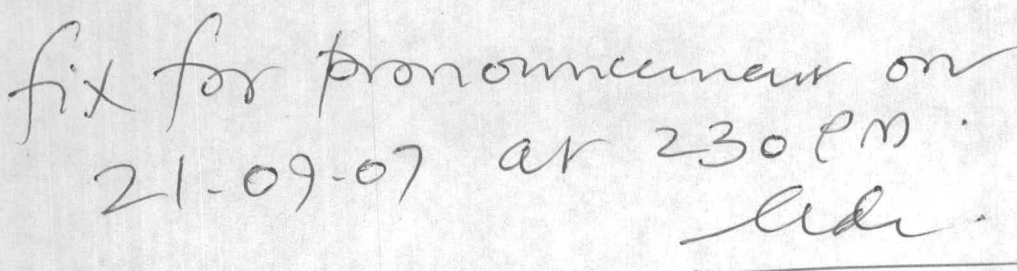 fix for pronouncement on
21-09-07 at 230 PM.